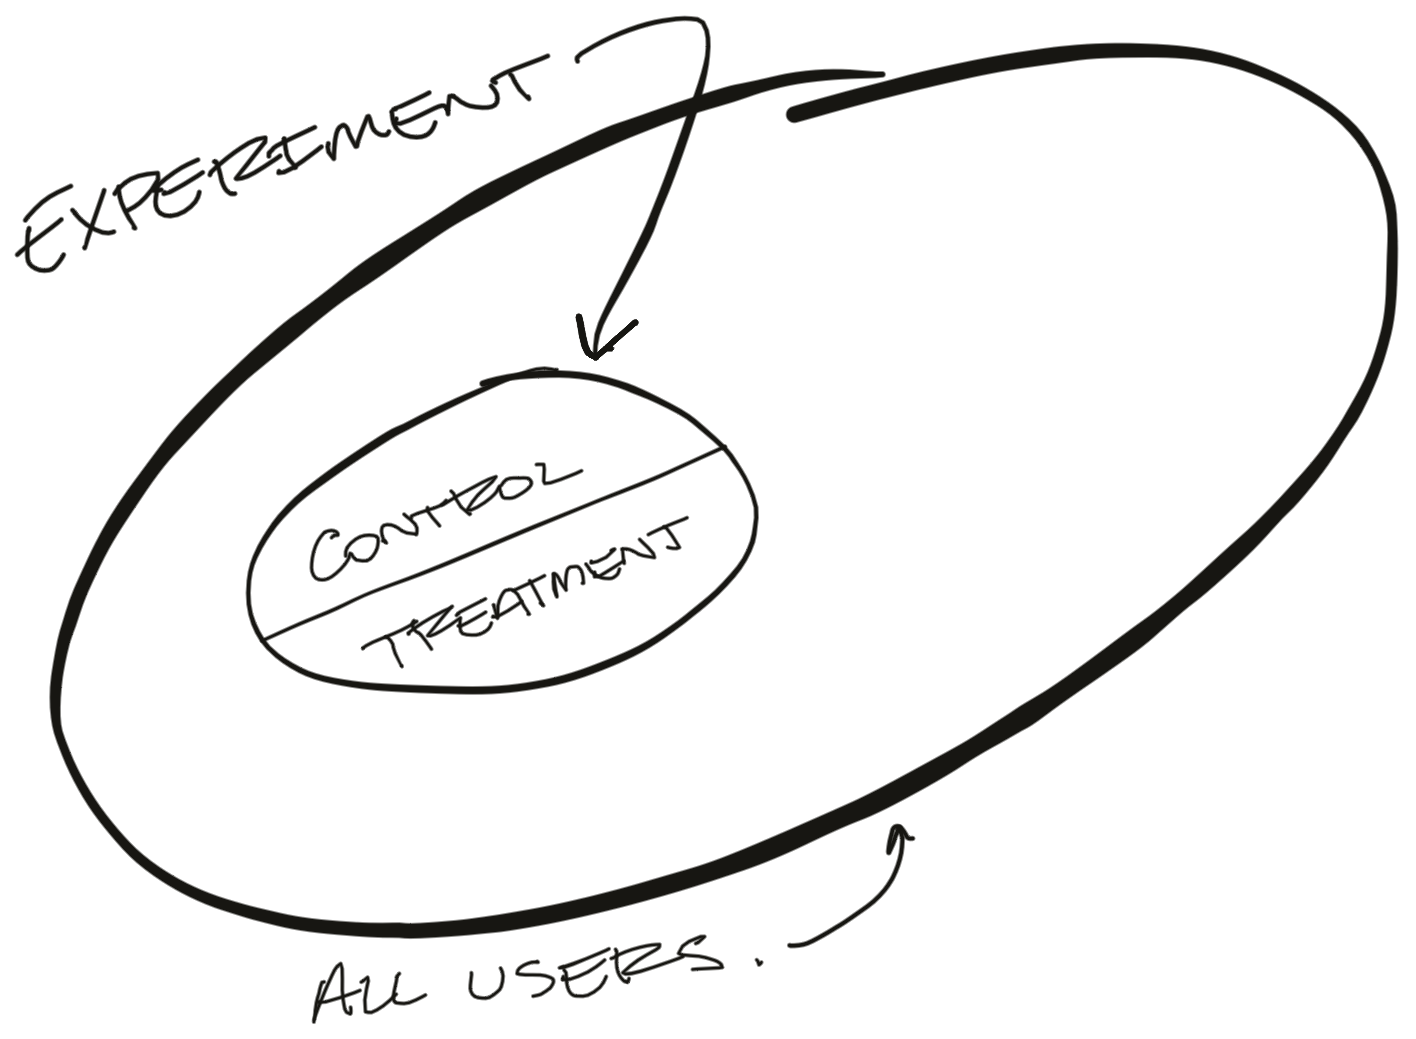 EXPERIMENT
CONTROL
TREATMENT
ALL USERS.